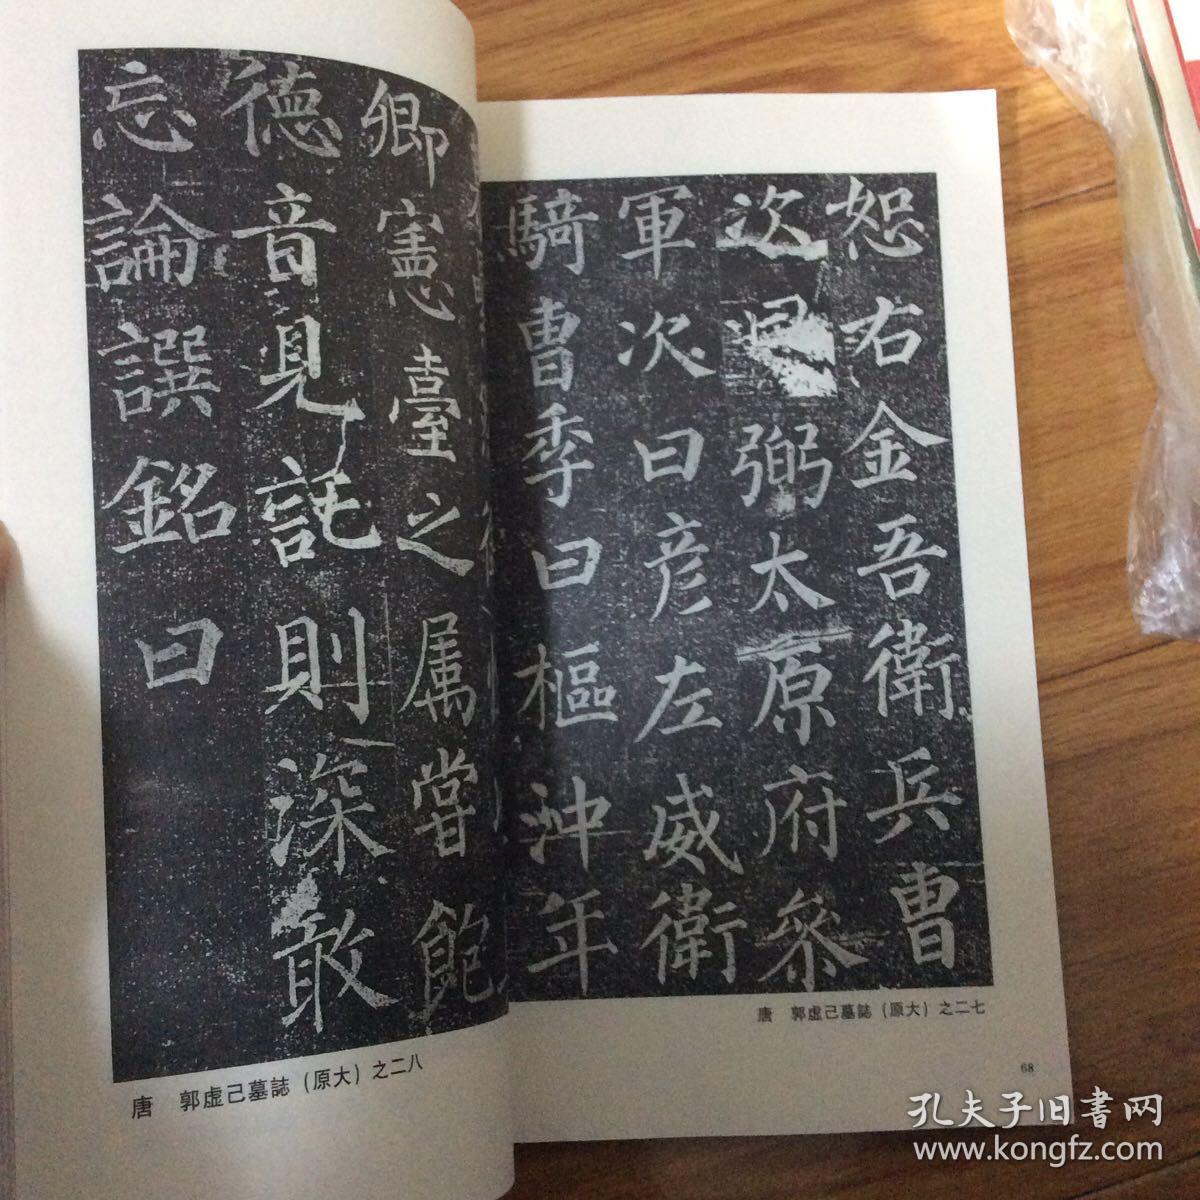 恕右金吾衛兵曹
次弼太原府叅
軍次曰彦左威衛
騎曹季曰樞沖年
唐 郭虚己墓誌（原大）之二七
68
卿憲臺之属嘗飽
德音見託則深敢
忘論譔銘曰
唐 郭虚己墓誌（原大）之二八
孔夫子旧書网
www.kongfz.com